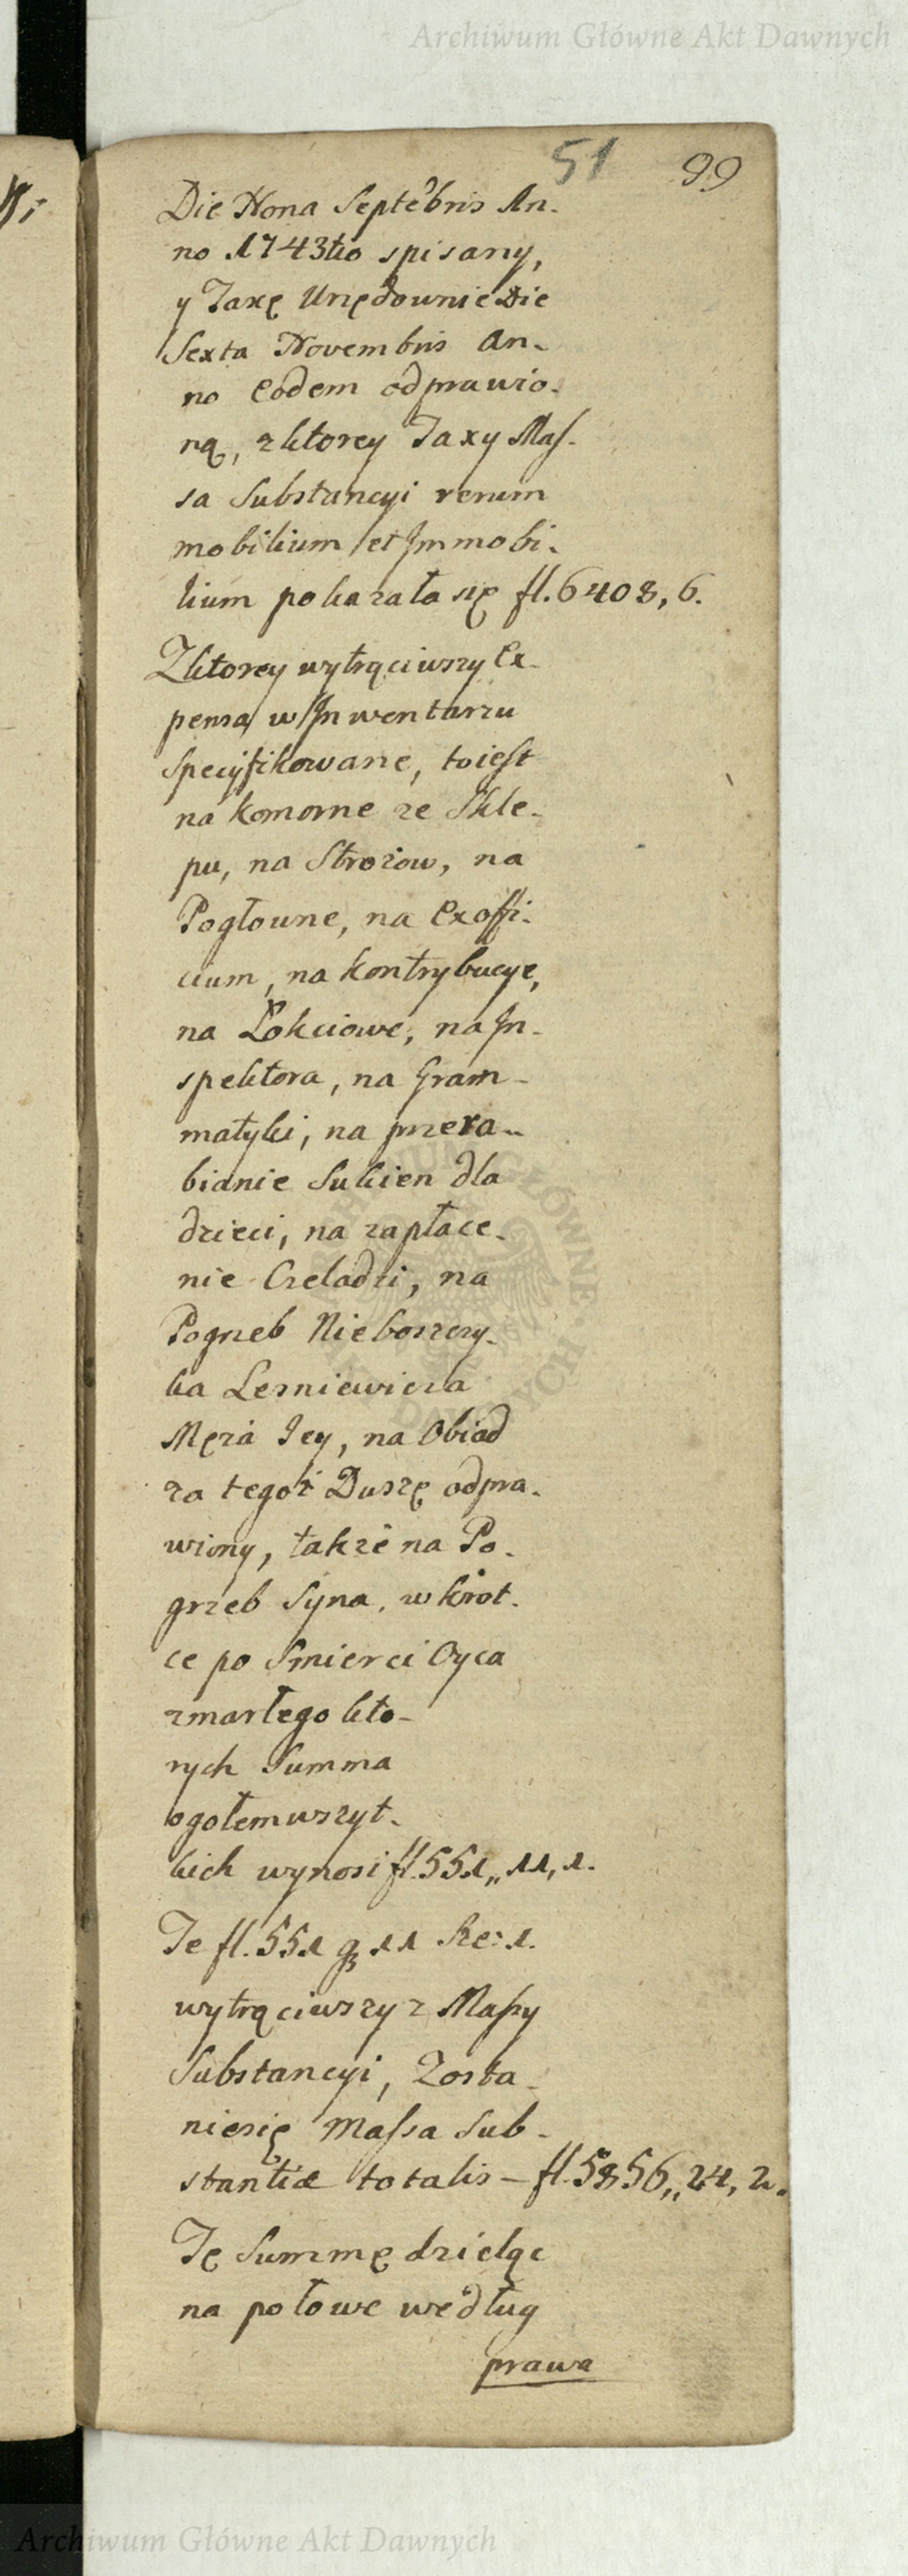 Archiwum Główne Akt Dawnych
51 99
Die Nona Septẽbris An-
no 1743tio spisany,
y Taxę Urzędownie Die
Sexta Novembris An-
no Eodem odprawio-
ną, z ktorey Taxy Mas-
sa Substancyi rerum
mobilium et Immobi-
lium pokazała się fl. 6408, 6.
Z ktorey wytrąciwszy Ex-
pensa w Inwentarzu
Specyfikowane, to iest
na komorne ze Skle-
pu, na Strożow, na
Pogłowne, na Exoffi-
cium, na kontrybucye,
na Łokciowe, na In-
spektora, na Gram-
matyki, na przera-
bianie Sukien dla
dzieci, na zapłace-
nie Czeladzi, na
Pogrzeb Nieboszczy-
ka Lesniewicza
Męża Jey, na Obiad
za tegoż Duszę odpra-
wiony, także na Po-
grzeb Syna, wkrot-
ce po Smierci Oyca
zmarłego kto-
rych Summa
ogołem wszyt-
kich wynosi fl. 551,, 11, 1.
Te fl. 551 g 11 sze: 1.
wytrąciwszy z Massy
Substancyi, Zosta-
nie się Massa Sub-
stantiæ totalis - fl. 5856,, 24, 2.
Tę Summę dzieląc
na połowe według
prawa
Archiwum Główne Akt Dawnych